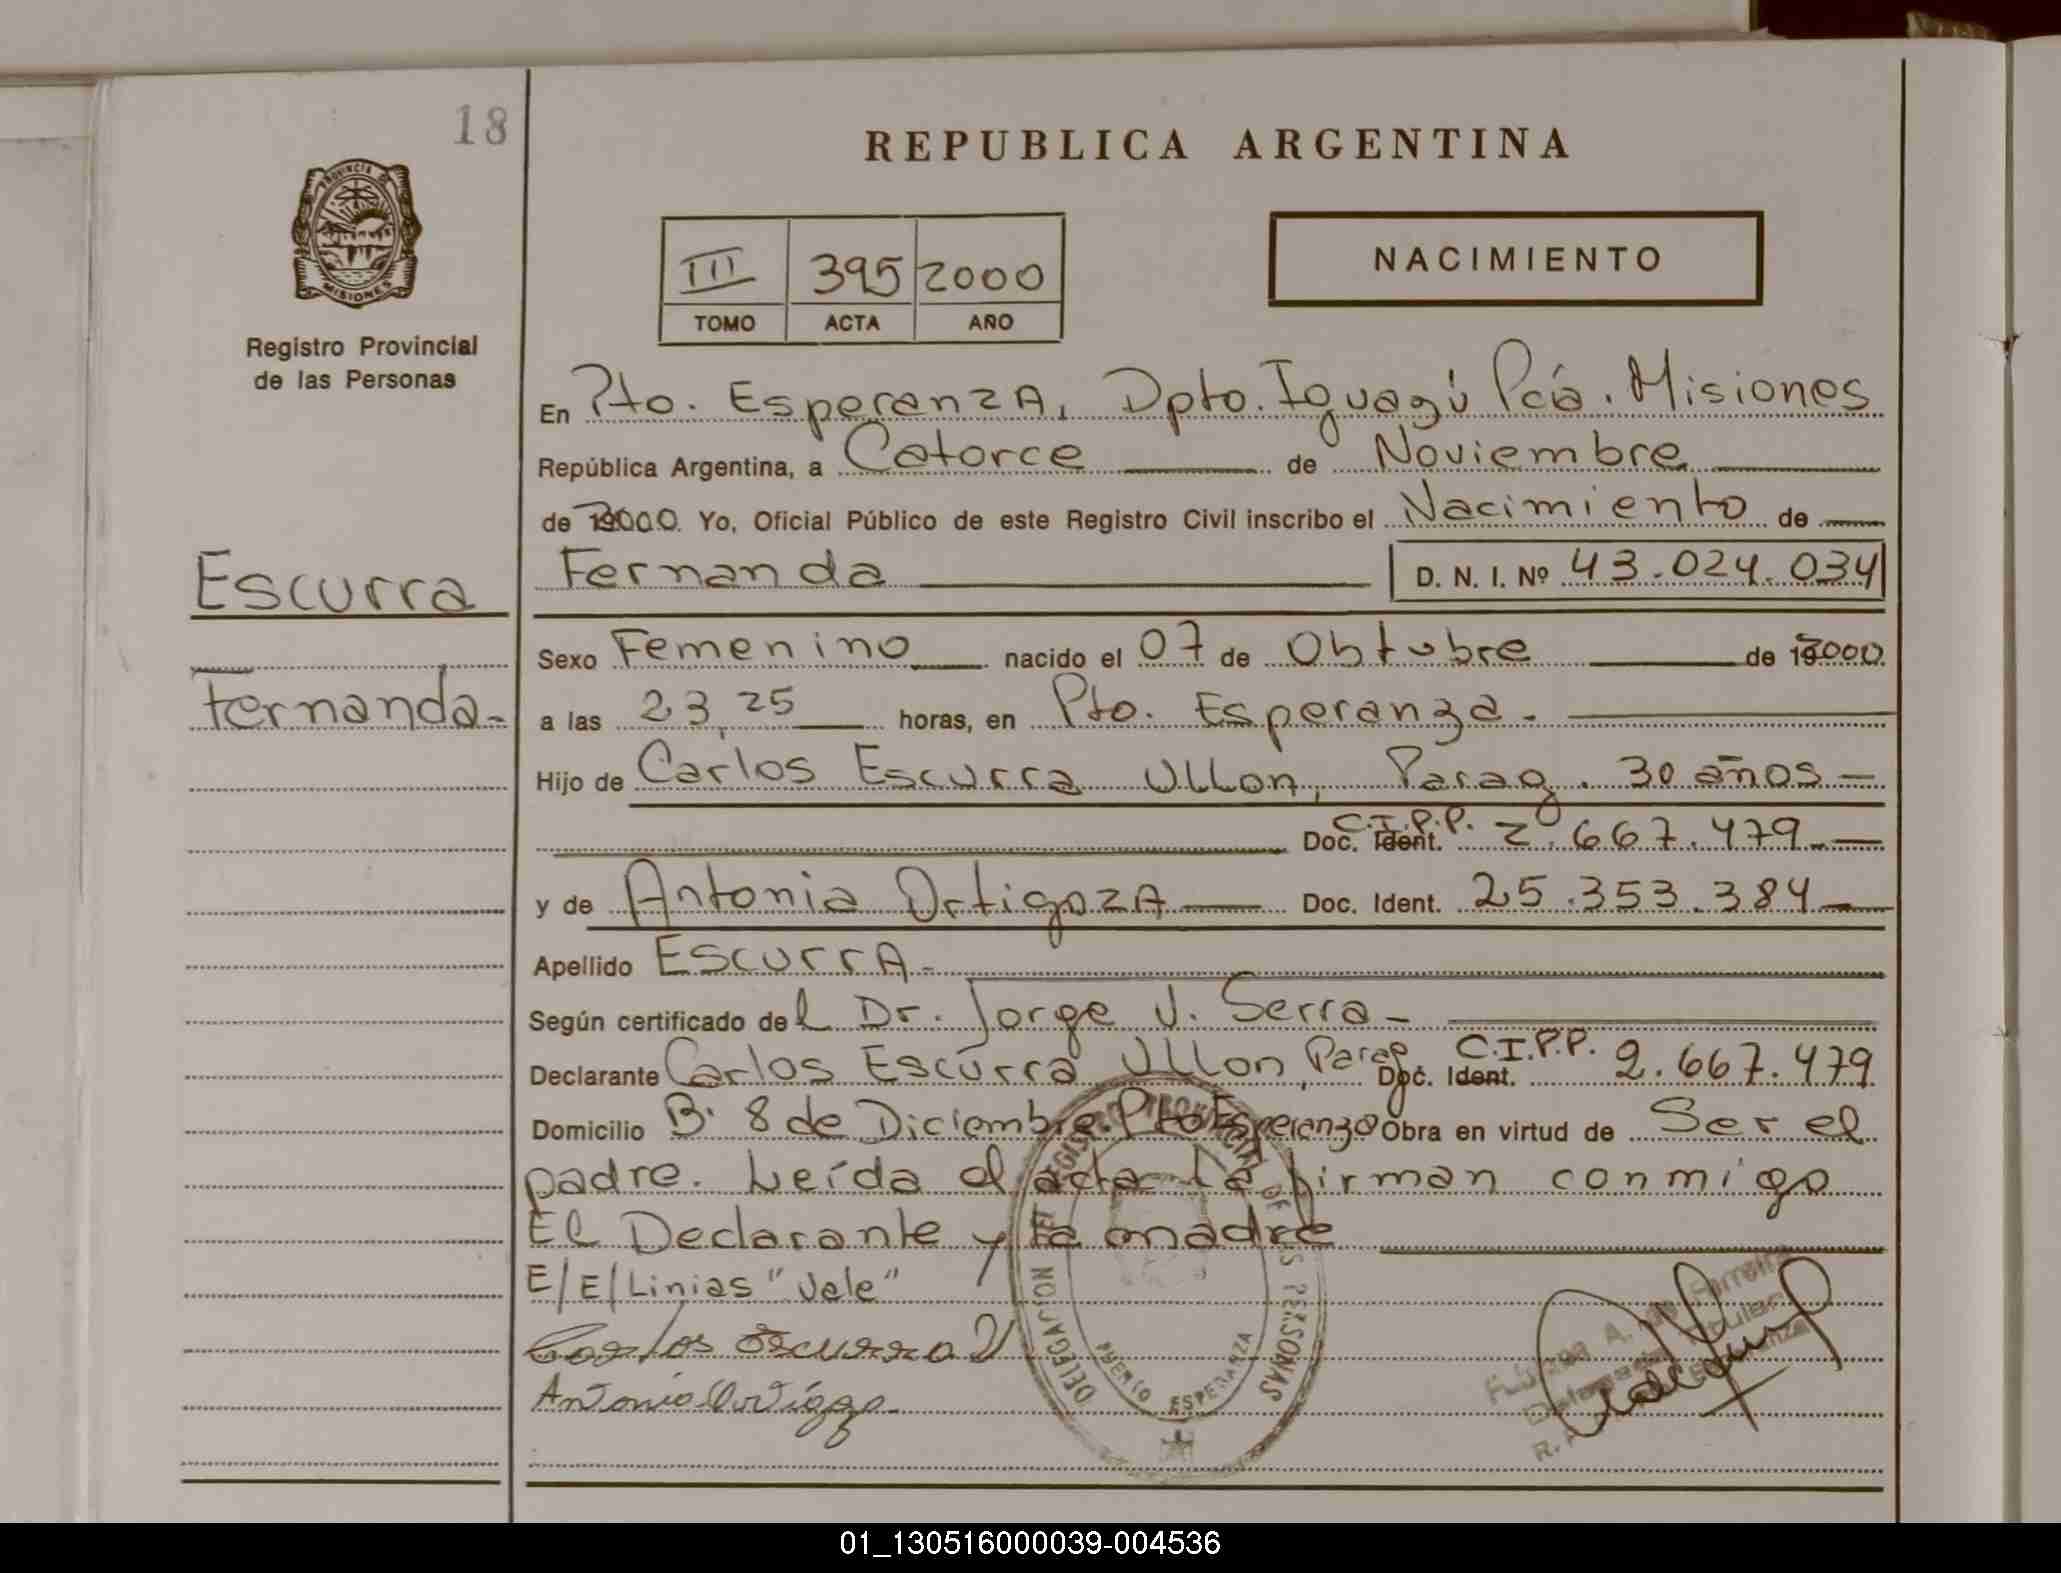 18
REPUBLICA ARGENTINA
PROVINCIA DE
MISIONES
III 395 2000
TOMO ACTA AÑO
NACIMIENTO
Registro Provincial
de las Personas
En Pto. EsperanzA, Dpto. Iguazú Pcia. Misiones
República Argentina, a Catorce de Noviembre
de 2000. Yo, Oficial Público de este Registro Civil inscribo el Nacimiento de
Escurra
Fernanda D. N. I. Nº 43.024.034
Sexo Femenino nacido el 07 de Obtubre de 2000
Fernanda-
a las 23,25 horas, en Pto. Esperanza.
Hijo de Carlos Escurra Ullon, Parag. 30 años
Doc. Ident. C.I.P.P. 2.667.479
y de Antonia OrtigozA Doc. Ident. 25.353.384
Apellido EscurrA-
Según certificado del Dr. Jorge V. Serra-
Declarante Carlos Escurra Ullon, Parag. Doc. Ident. C.I.P.P. 2.667.479
Domicilio B. 8 de Diciembre. Pto Esperanza Obra en virtud de Ser el
padre. Leída el acta la firman conmigo
El Declarante y la madre
E/E/Linias "Vale"
Carlos Escurra U
Antonia Ortigoza
DELEGACION DEL REGISTRO PROVINCIAL DE LAS PERSONAS
PUERTO ESPERANZA
01_130516000039-004536